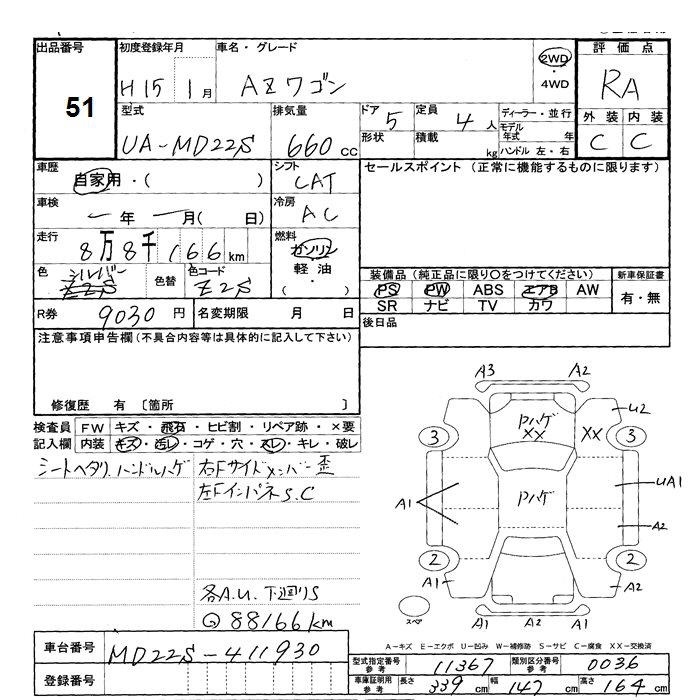 出品番号 初度登録年月 車名・グレード 評価点
51 H15 1月 AZワゴン 2WD・4WD RA
型式 排気量 ドア 定員 ディーラー・並行 外装 内装
UA-MD22S 660cc 5 4人 モデル年式 年 C C
形状 積載 kg ハンドル 左・右
車歴 シフト セールスポイント（正常に機能するものに限ります）
自家用・（ ） CAT
車検 年 月（ 日） 冷房 AC
走行 8万8千166km 燃料 ガソリン 軽油 ・（ ）
色 シルバー Z2S 色替 色コード Z2S
装備品（純正品に限り○をつけてください） 新車保証書
PS PW ABS エアB AW 有・無
SR ナビ TV カワ
R券 9030円 名変期限 月 日 後日品
注意事項申告欄（不具合内容等は具体的に記入して下さい）
修復歴 有〔箇所 〕
検査員 FW キズ・飛石・ヒビ割・リペア跡・×要
記入欄 内装 キズ・汚レ・コゲ・穴・スレ・キレ・破レ
シートヘタリ、ハンドルハゲ 右Fサイドメンバー歪
左Fインパネ S.C
各A.U. 下廻りS
Q 88166km
A3 A2
Pハゲ XX XX U2
3 3
Pハゲ
A1 UA1
A2
2 2
A1 A2
A1 A2 A1
スペア
A－キズ E－エクボ U－凹み W－補修跡 S－サビ C－腐食 XX－交換済
車台番号 MD22S-411930
登録番号
型式指定番号 参考 11367 類別区分番号 参考 0036
車庫証明用 参考 長さ 339cm 幅 147cm 高さ 164cm